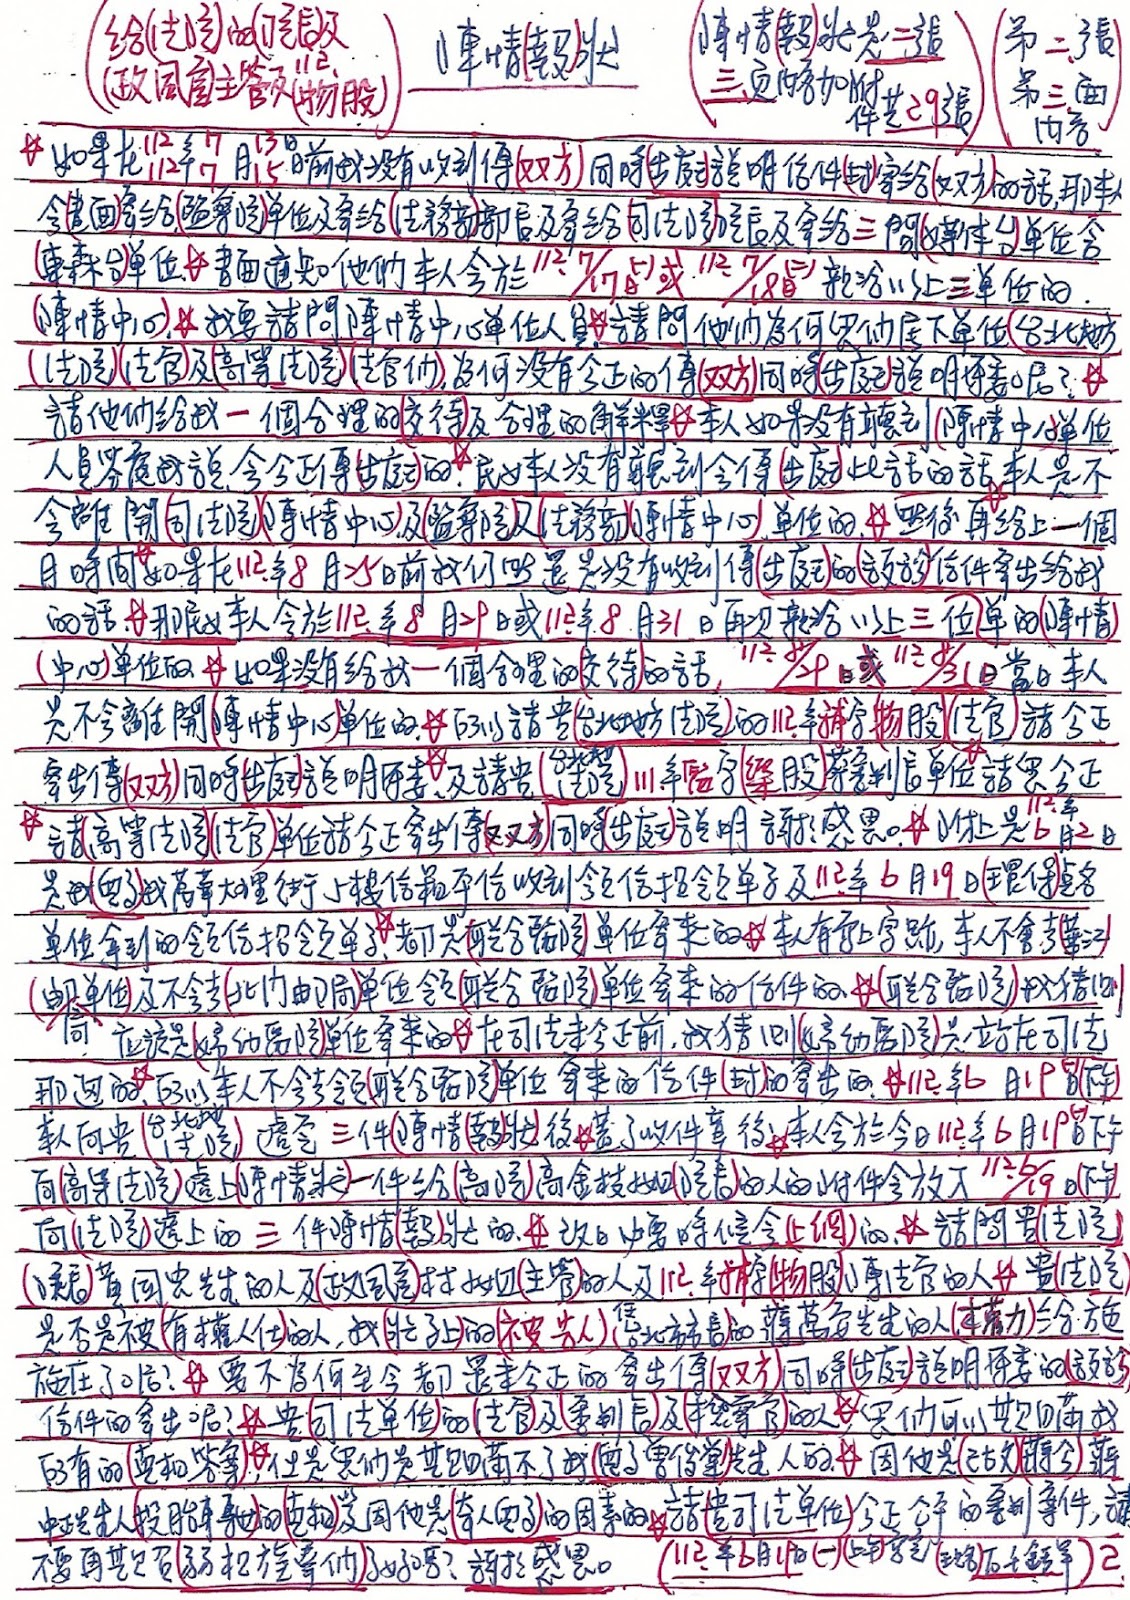 (給(法院)的(院長及
(政風室主管及112.(物股)
陳情(報)狀
(陳情(報)狀是二張
三頁內容加附
件共29張)
(第二張
第三面
內容)
☆如果在112年7月13日前我沒有收到傳(双方)同時(出庭)說明信件(封)寄給(双方)的話,那本人
112年7月15
會書面寄給(監察院)單位及寄給(法務部)部長及寄給司法院院長及寄給三間(媒体台)單位含
(東森台)單位☆書面通知他們本人會於112.7/17日(一)或112.7/18日(二)親洽以上三單位的.
(陳情中心).☆我要請問陳情中心單位人員☆請問他們為何您們底下單位(台北地方
(法院)(法官)及(高等法院)(法官們).為何沒有公正的傳(双方)同時(出庭)說明原委呢?☆
請他們給我一個合理的(交待)及合理的解釋☆本人如果沒有聽到(陳情中心)單位
人員答覆我說.會公正傳(出庭)的.☆民女本人沒有聽到會傳(出庭)此話的話.本人是不
會離開(司法院)(陳情中心)及(監察院)及(法務部)(陳情中心)單位的.☆然後再給上一個
月時間☆如果在112.年8月25日前我们還是沒有收到傳(出庭)的信件寄出給我
的話.☆那民女本人會於112.年8月29日或112.年8月31日再次親洽以上三位單的(陳情)
(中心)單位的.☆如果沒有給我一個合理的(交待)的話.112.8/29日或112.8/31日當日本人
是不會離開(陳情中心)單位的.☆所以請貴(台北地方法院)的112.年補字(物股)(法官)請公正
寄出傳(双方)同時(出庭)說明原委☆及請貴(台北地法院)111年字股審判長單位☆請您公正
☆請(高等法院)(法官)單位請公正寄出傳(双方)同時(出庭)說明.謝謝感恩。☆附上是112.年6月2日
是我(兒子)我萬華大理街信箱平信收到領信招領單子及112.年6月19日
單位拿到的領信招領單子☆都是(聯合醫院)單位寄來的☆本人有寫上字跡,本人不會去(華江)
(郵局單位)及不會去(北門郵局)單位領(聯合醫院)單位寄來的信件的.☆(聯合醫院)我猜測
應該是(婦幼醫院)單位寄來的☆在司法未公正前.我猜測(婦幼醫院)是站在司法
那邊的.☆所以本人不會去領(聯合醫院)單位寄來的信件(封)的寄出的.☆112.年6月19日(一)下午
本人向貴(台北地法院)遞呈三件(陳情(報)狀)後☆蓋了收件章後☆本人會於今日112.年6月19日(一)下午
向(高等法院)遞上(陳情狀)一件給(高院)高金枝女(院長)的人的附件會放入112.6/19日(下午)
向(法院)遞上的三件陳情(報)狀的.☆改日必要時候會(上網)的.☆請問貴(法院)
(院長)黃國忠先生的人及(政風室)林(主管)的人及112.年補字(物股)陳法官的人☆貴(法院)
是否是被(有權人仕)的人.我(狀子上)的(被告人)台北市市長的蔣萬安先生的人(本權力)給方施
施在了呢?☆要不為何至今都還未公正的寄出傳(双方)同時(出庭)說明原委的
信件的寄出呢?☆貴(司法單位)的(法官)及(審判長)及(檢察官)的人☆您們可以欺瞞我
所有的(真相答案)☆但是您們是欺瞞不了我(兒子)先生人的.☆因他是(古文)(蔣公)蔣
中正先生人(投胎轉世)的(真相)及因他是(本人兒子)的因素的.☆請貴(司法單位)公正公平的審判案件,請
不要再欺負(弱相族羣們)好嗎?謝謝感恩。
(112.年6月19日(一)上午) 2